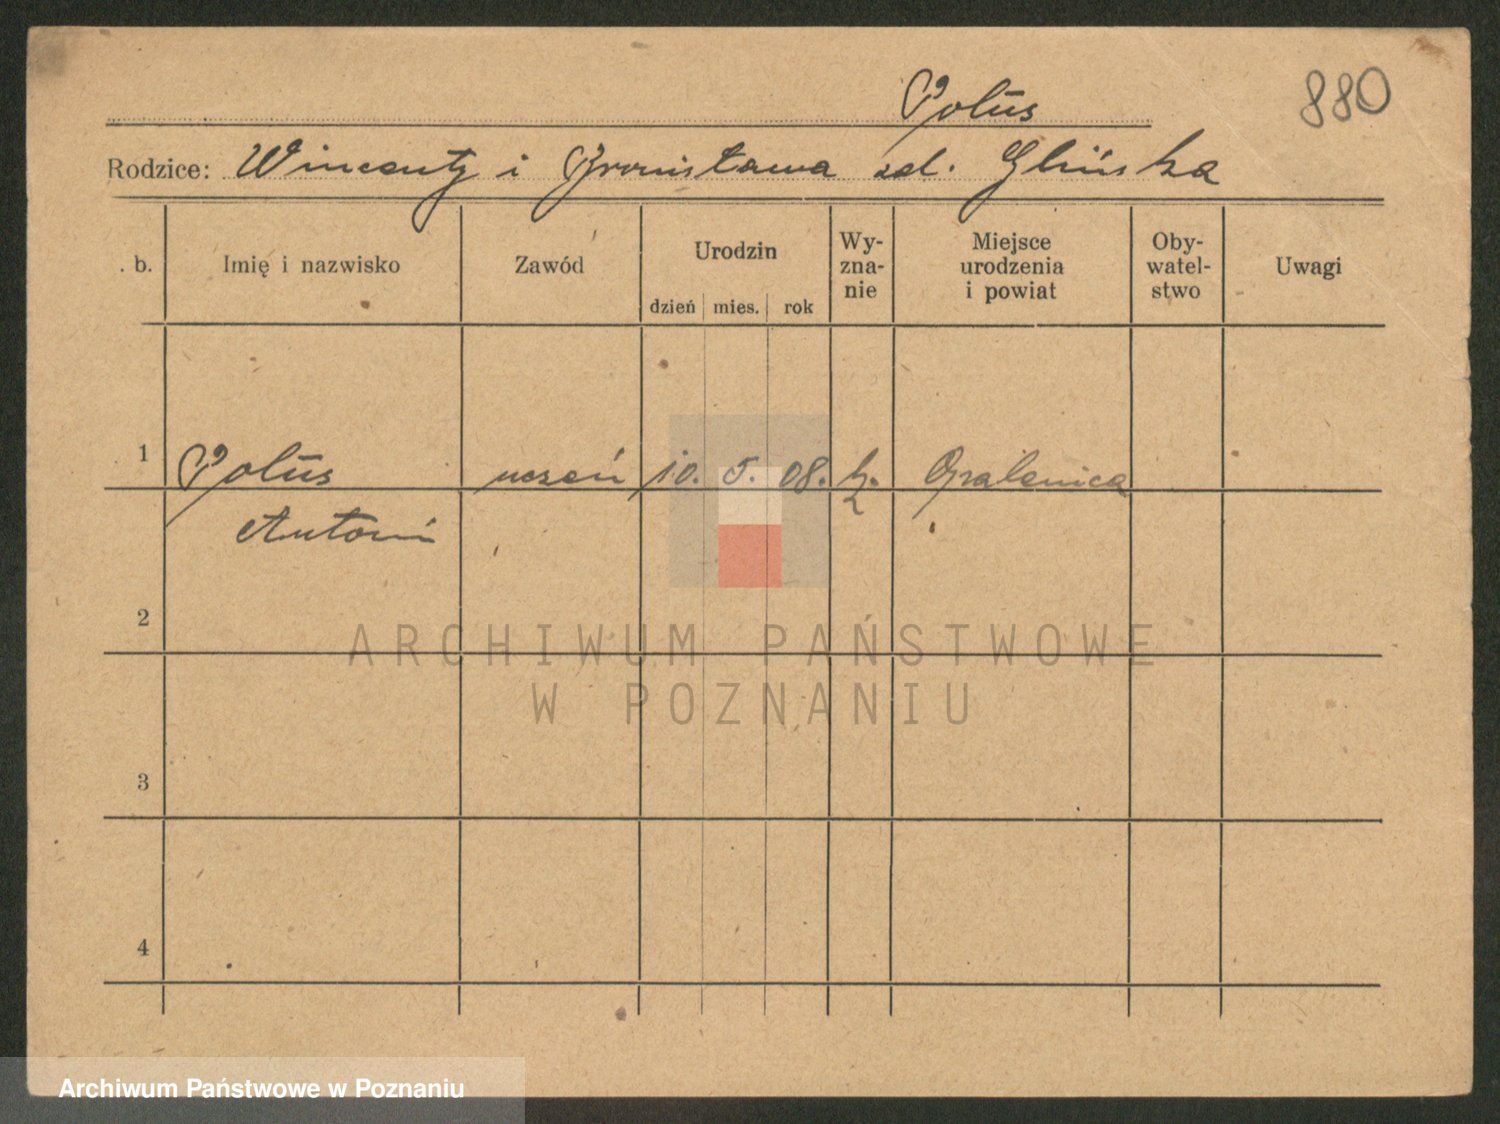 Polus
880
Rodzice: Wincenty i Bronisława zd. Glińska
. b. Imię i nazwisko Zawód Urodzin dzień mies. rok Wy- zna- nie Miejsce urodzenia i powiat Oby- watel- stwo Uwagi
1 Polus uczeń 10. 5. 08. k. Opalenica
Antoni
2
ARCHIWUM PAŃSTWOWE
W POZNANIU
3
4
Archiwum Państwowe w Poznaniu